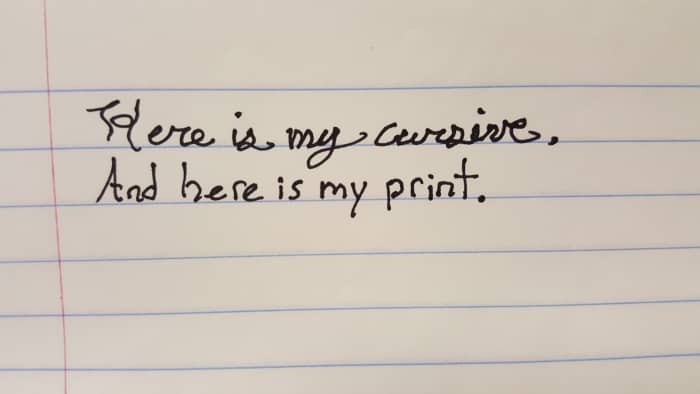 Here is my cursive.
And here is my print.